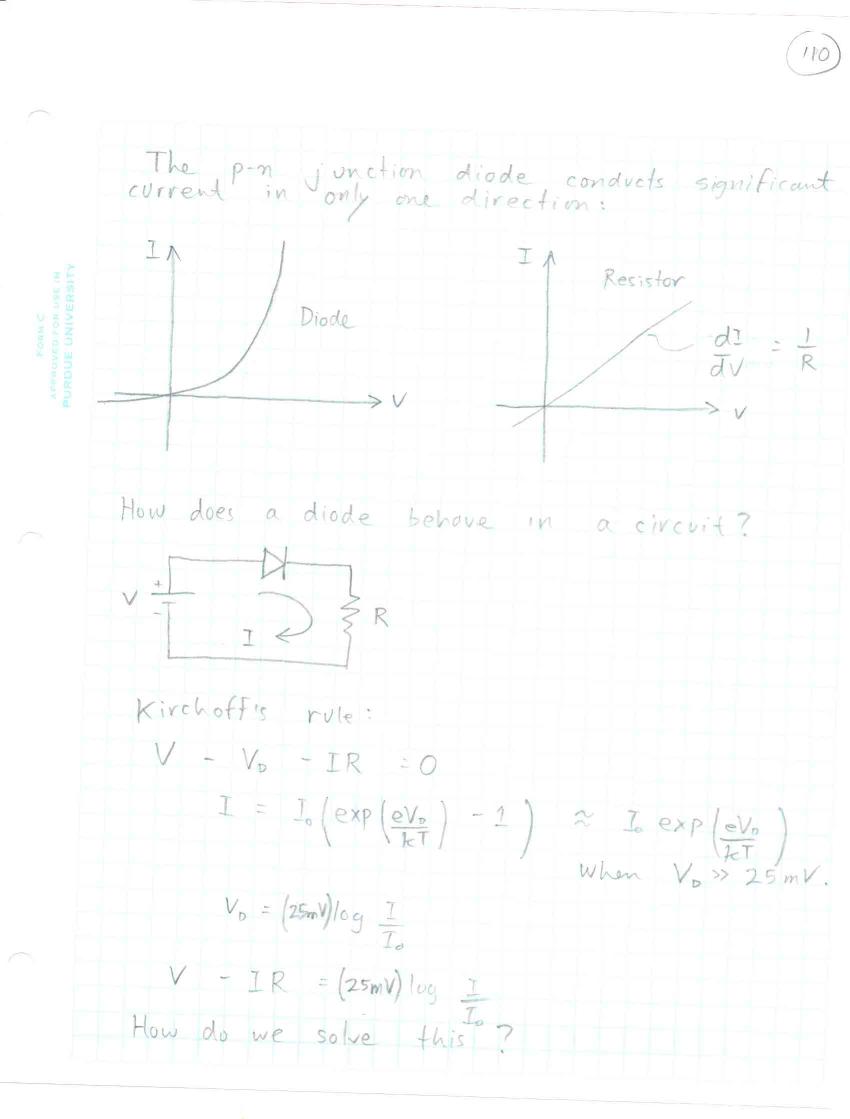 110
The p-n junction diode conducts significant
current in only one direction:
I
Diode
V
I
Resistor
dI/dV = 1/R
V
FORM C
APPROVED FOR USE IN
PURDUE UNIVERSITY
How does a diode behave in a circuit?
V
+
-
I
R
Kirchoff's rule:
V - V_D - IR = 0
I = I_0 (exp(eV_D/kT) - 1) ≈ I_0 exp(eV_D/kT)
when V_D >> 25mV.
V_D = (25mV) log I/I_0
V - IR = (25mV) log I/I_0
How do we solve this?